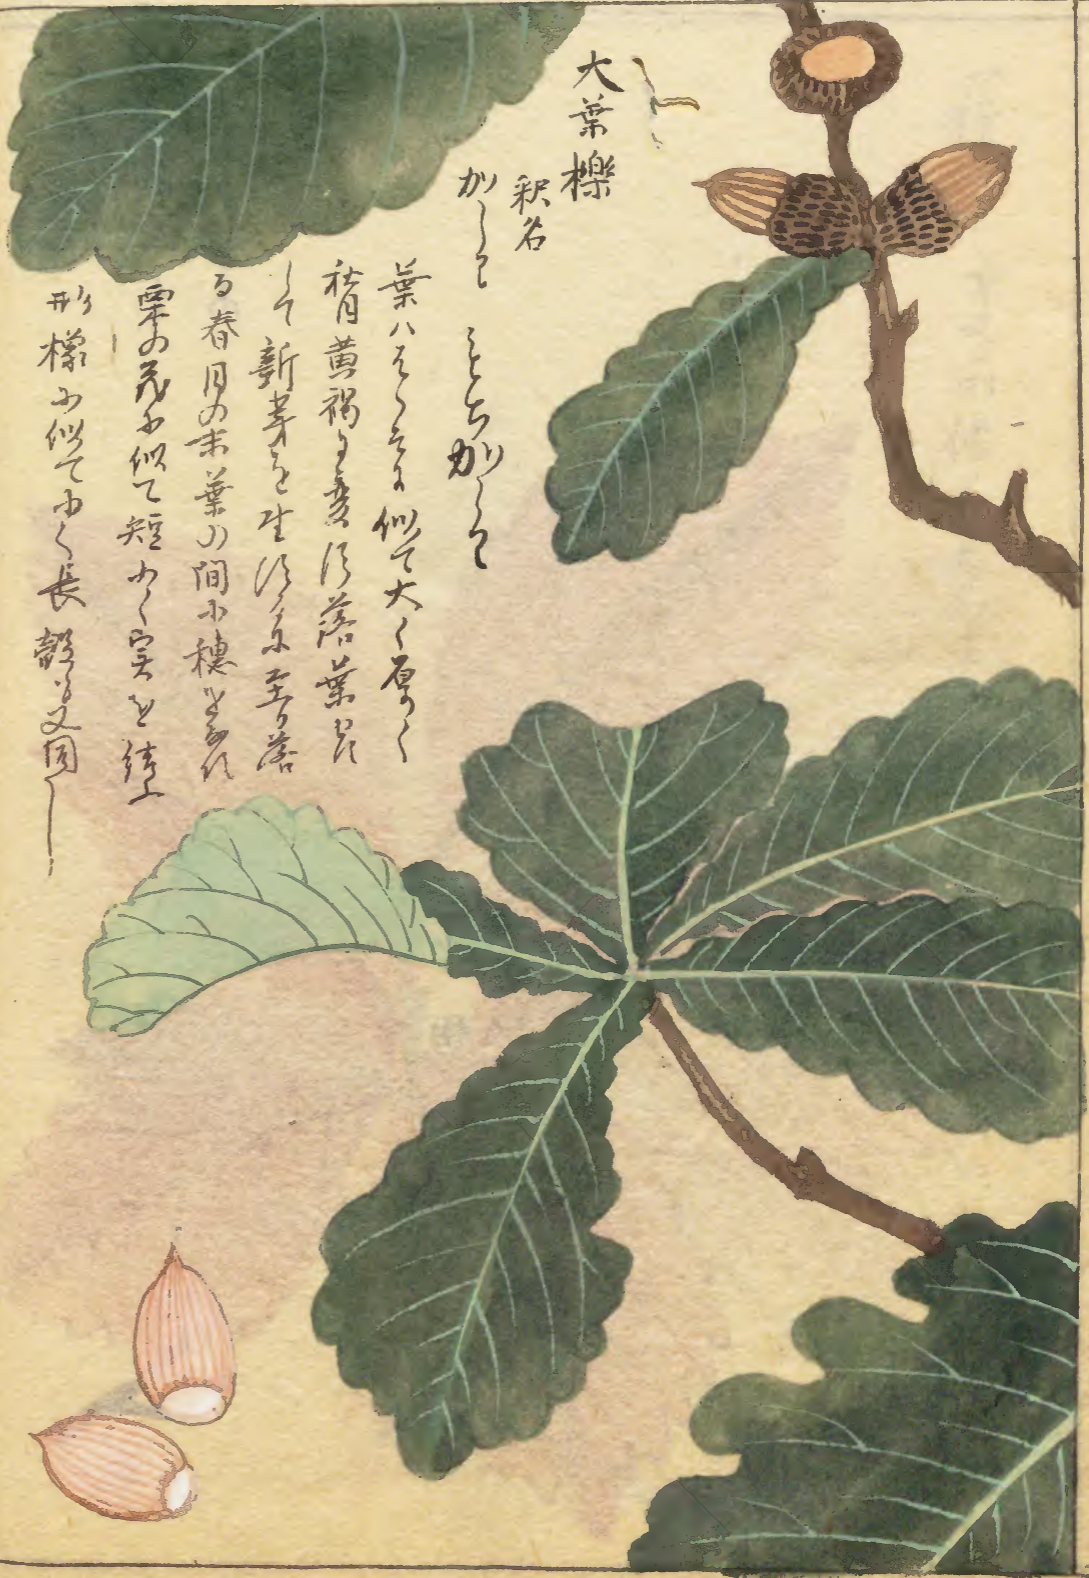 大葉櫟
釈名
かしは
こならかしは
葉ハくりに似て大く厚く
秋月黄褐に変じ落葉せず
して新芽を生ずるに至り落
る春月の末葉の間に穂をなす
栗の花に似て短かく実を結ふ
形橡に似て小く長殻も又同し